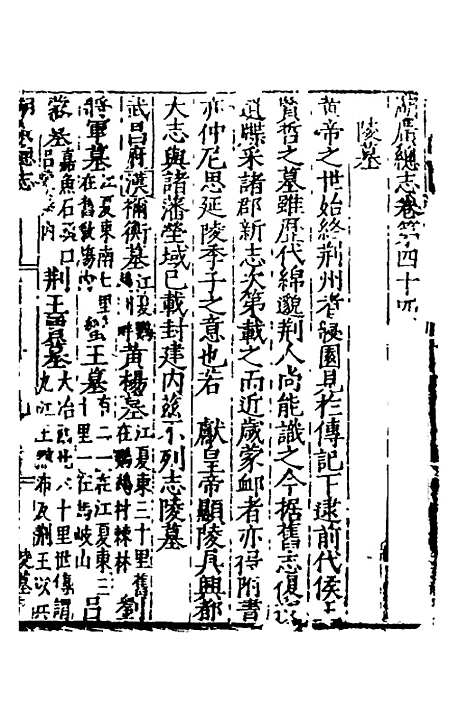 湖廣總志卷第四十四
陵墓
黃帝之世始終荆州者寢園見於傳記下逮前代侯王
賢哲之墓雖歷代綿邈荆人尚能識之今據舊志復
追牒采諸郡新志次第載之而近歲蒙卹者亦得附書
亦仲尼思延陵季子之意也若 獻皇帝顯陵具興都
大志與諸藩塋域已載封建内兹不列志陵墓
武昌府漢禰衡墓江夏鸚 黃楊墓在江夏東三十里舊 劉
將軍墓江夏東南七里在舊 蠻王墓有二一在江夏東三十里一在馬岐山 吕
蒙墓嘉魚石 口内 荆王 墓大冶 十里世傳謂九江王 布及荆王以兵
陵墓